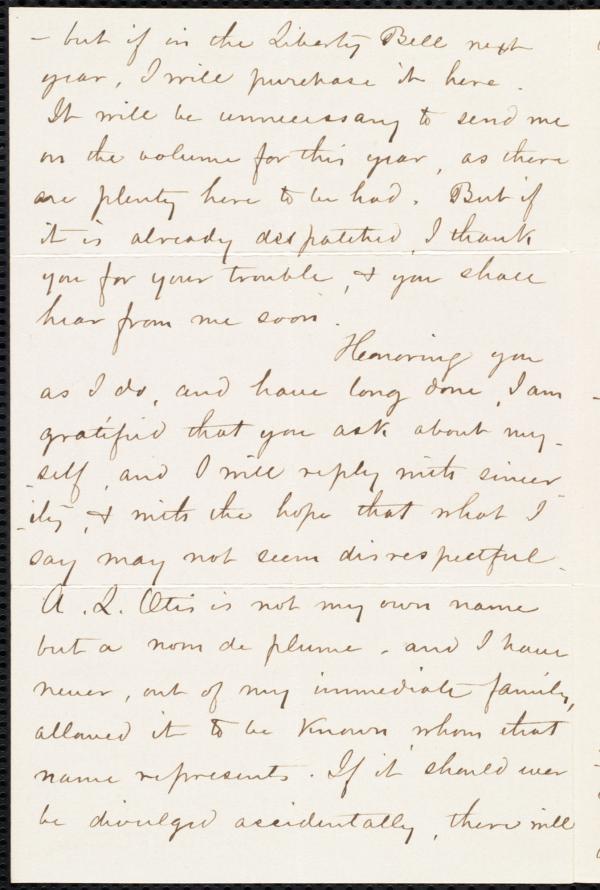 - but if in the Liberty Bell next
year, I will purchase it here.
It will be unnecessary to send me
on the volume for this year, as there
are plenty here to be had. But if
it is already despatched, I thank
you for your trouble, & you shall
hear from me soon.
Honoring you
as I do, and have long done, I am
gratified that you ask about my-
-self, and I will reply with sincer-
-ity, & with the hope that what I
say may not seem disrespectful.
A. L. Otis is not my own name
but a nom de plume. and I have
never, out of my immediate family,
allowed it to be known whom that
name represents. If it should ever
be divulged accidentally, there will